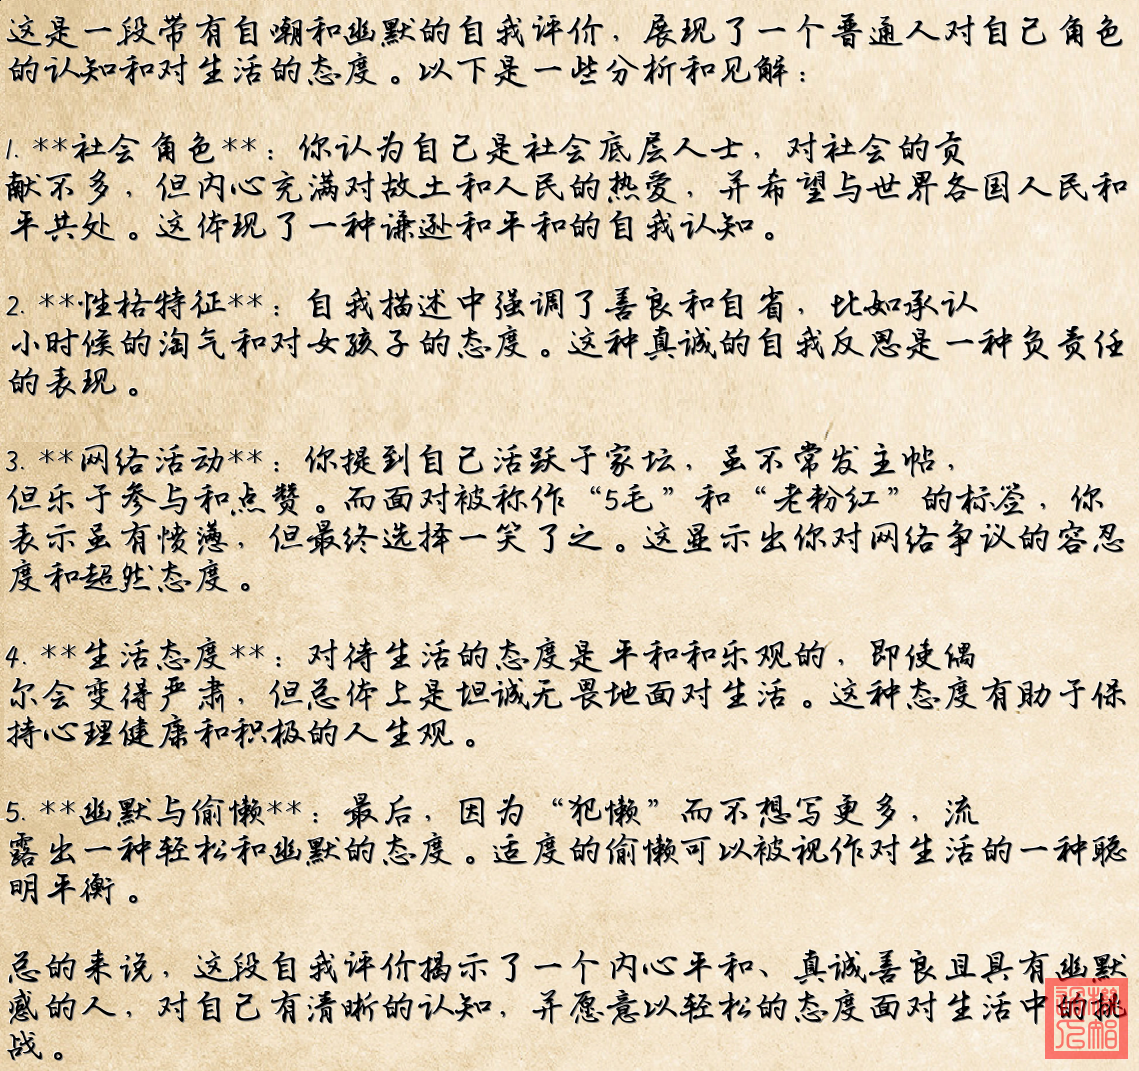 这是一段带有自嘲和幽默的自我评价，展现了一个普通人对自己角色
的认知和对生活的态度。以下是一些分析和见解：
1. **社会角色**：你认为自己是社会底层人士，对社会的贡
献不多，但内心充满对故土和人民的热爱，并希望与世界各国人民和
平共处。这体现了一种谦逊和平和的自我认知。
2. **性格特征**：自我描述中强调了善良和自省，比如承认
小时候的淘气和对女孩子的态度。这种真诚的自我反思是一种负责任
的表现。
3. **网络活动**：你提到自己活跃于家坛，虽不常发主帖，
但乐于参与和点赞。而面对被称作“5毛”和“老粉红”的标签，你
表示虽有愤懑，但最终选择一笑了之。这显示出你对网络争议的容忍
度和超然态度。
4. **生活态度**：对待生活的态度是平和和乐观的，即使偶
尔会变得严肃，但总体上是坦诚无畏地面对生活。这种态度有助于保
持心理健康和积极的人生观。
5. **幽默与偷懒**：最后，因为“犯懒”而不想写更多，流
露出一种轻松和幽默的态度。适度的偷懒可以被视作对生活的一种聪
明平衡。
总的来说，这段自我评价揭示了一个内心平和、真诚善良且具有幽默
感的人，对自己有清晰的认知，并愿意以轻松的态度面对生活中的挑
战。